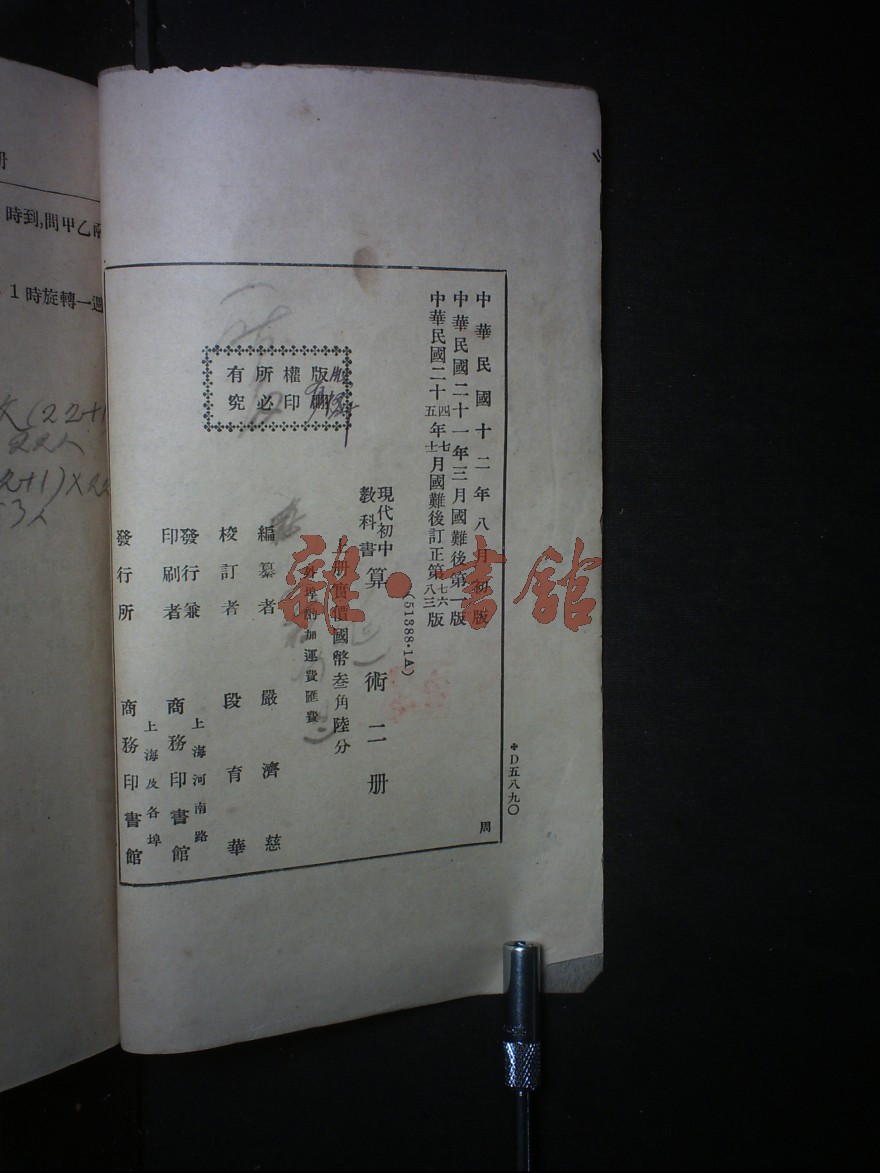 中華民國十二年八月初版
中華民國二十一年三月國難後第一版
中華民國二十四年七月國難後訂正第七六版
五 十二 八三
(51388·1A)
現代初中
教科書 算術二册
上册實價國幣叁角陸分
外埠酌加運費匯費
版權所有
翻印必究
編纂者 嚴濟慈
校訂者 段育華
發行兼
印刷者 上海河南路
商務印書館
發行所 上海及各埠
商務印書館
周
❖D五八九〇
時到,問甲乙兩
1時旋轉一週
(22+1
22人
2+1)×22
雜·書館